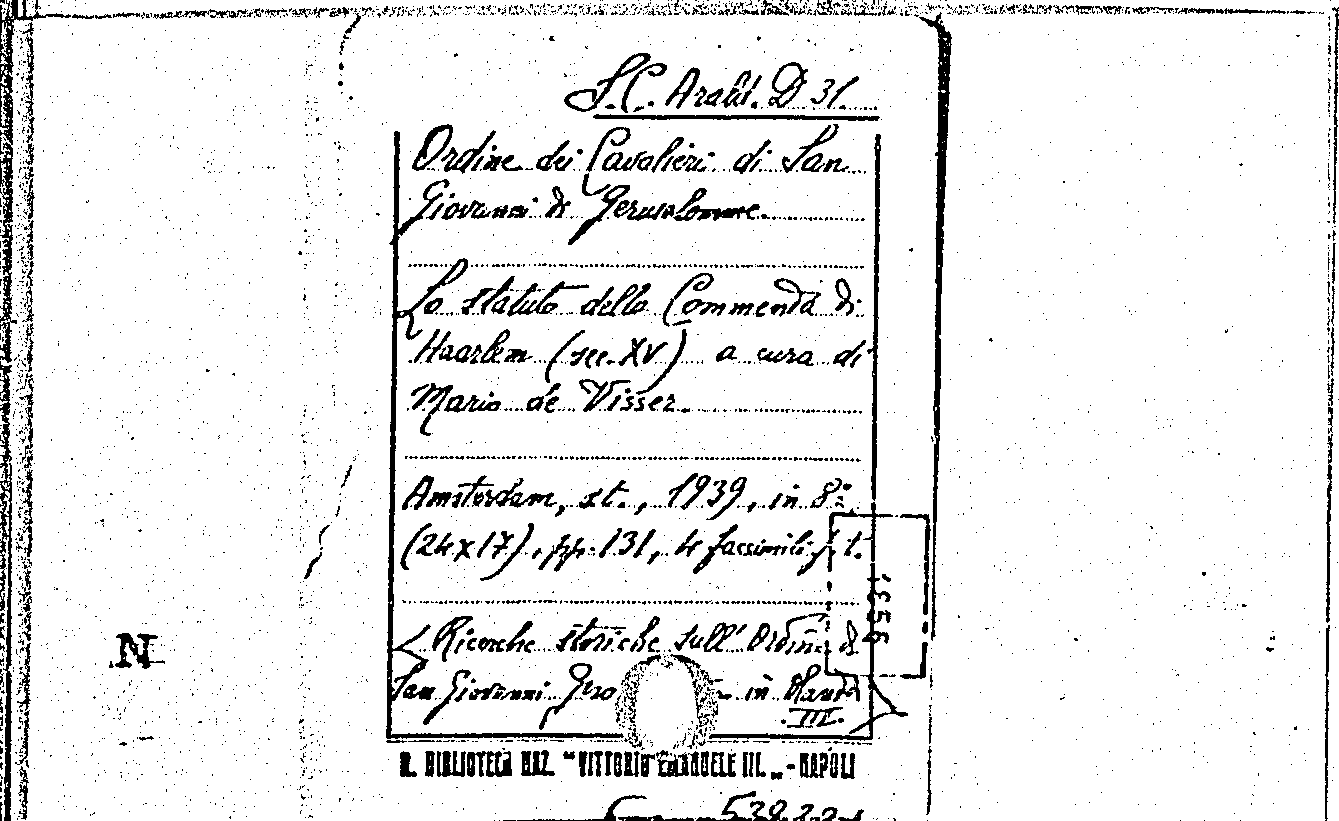 S.C. Arald. D 31.
Ordine dei Cavalieri di San
Giovanni di Gerusalemme.
Lo statuto della Commenda di
Haarlem (sec. XV) a cura di
Mario de Visser.
Amsterdam, st., 1939, in 8º
(24x17), pp. 131, 4 facsimili f. t.
1956
< Ricerche storiche sull' Ordine di
San Giovanni Gero in Olanda
III.
N
R. BIBLIOTECA NAZ. "VITTORIO EMANUELE III. „ - NAPOLI